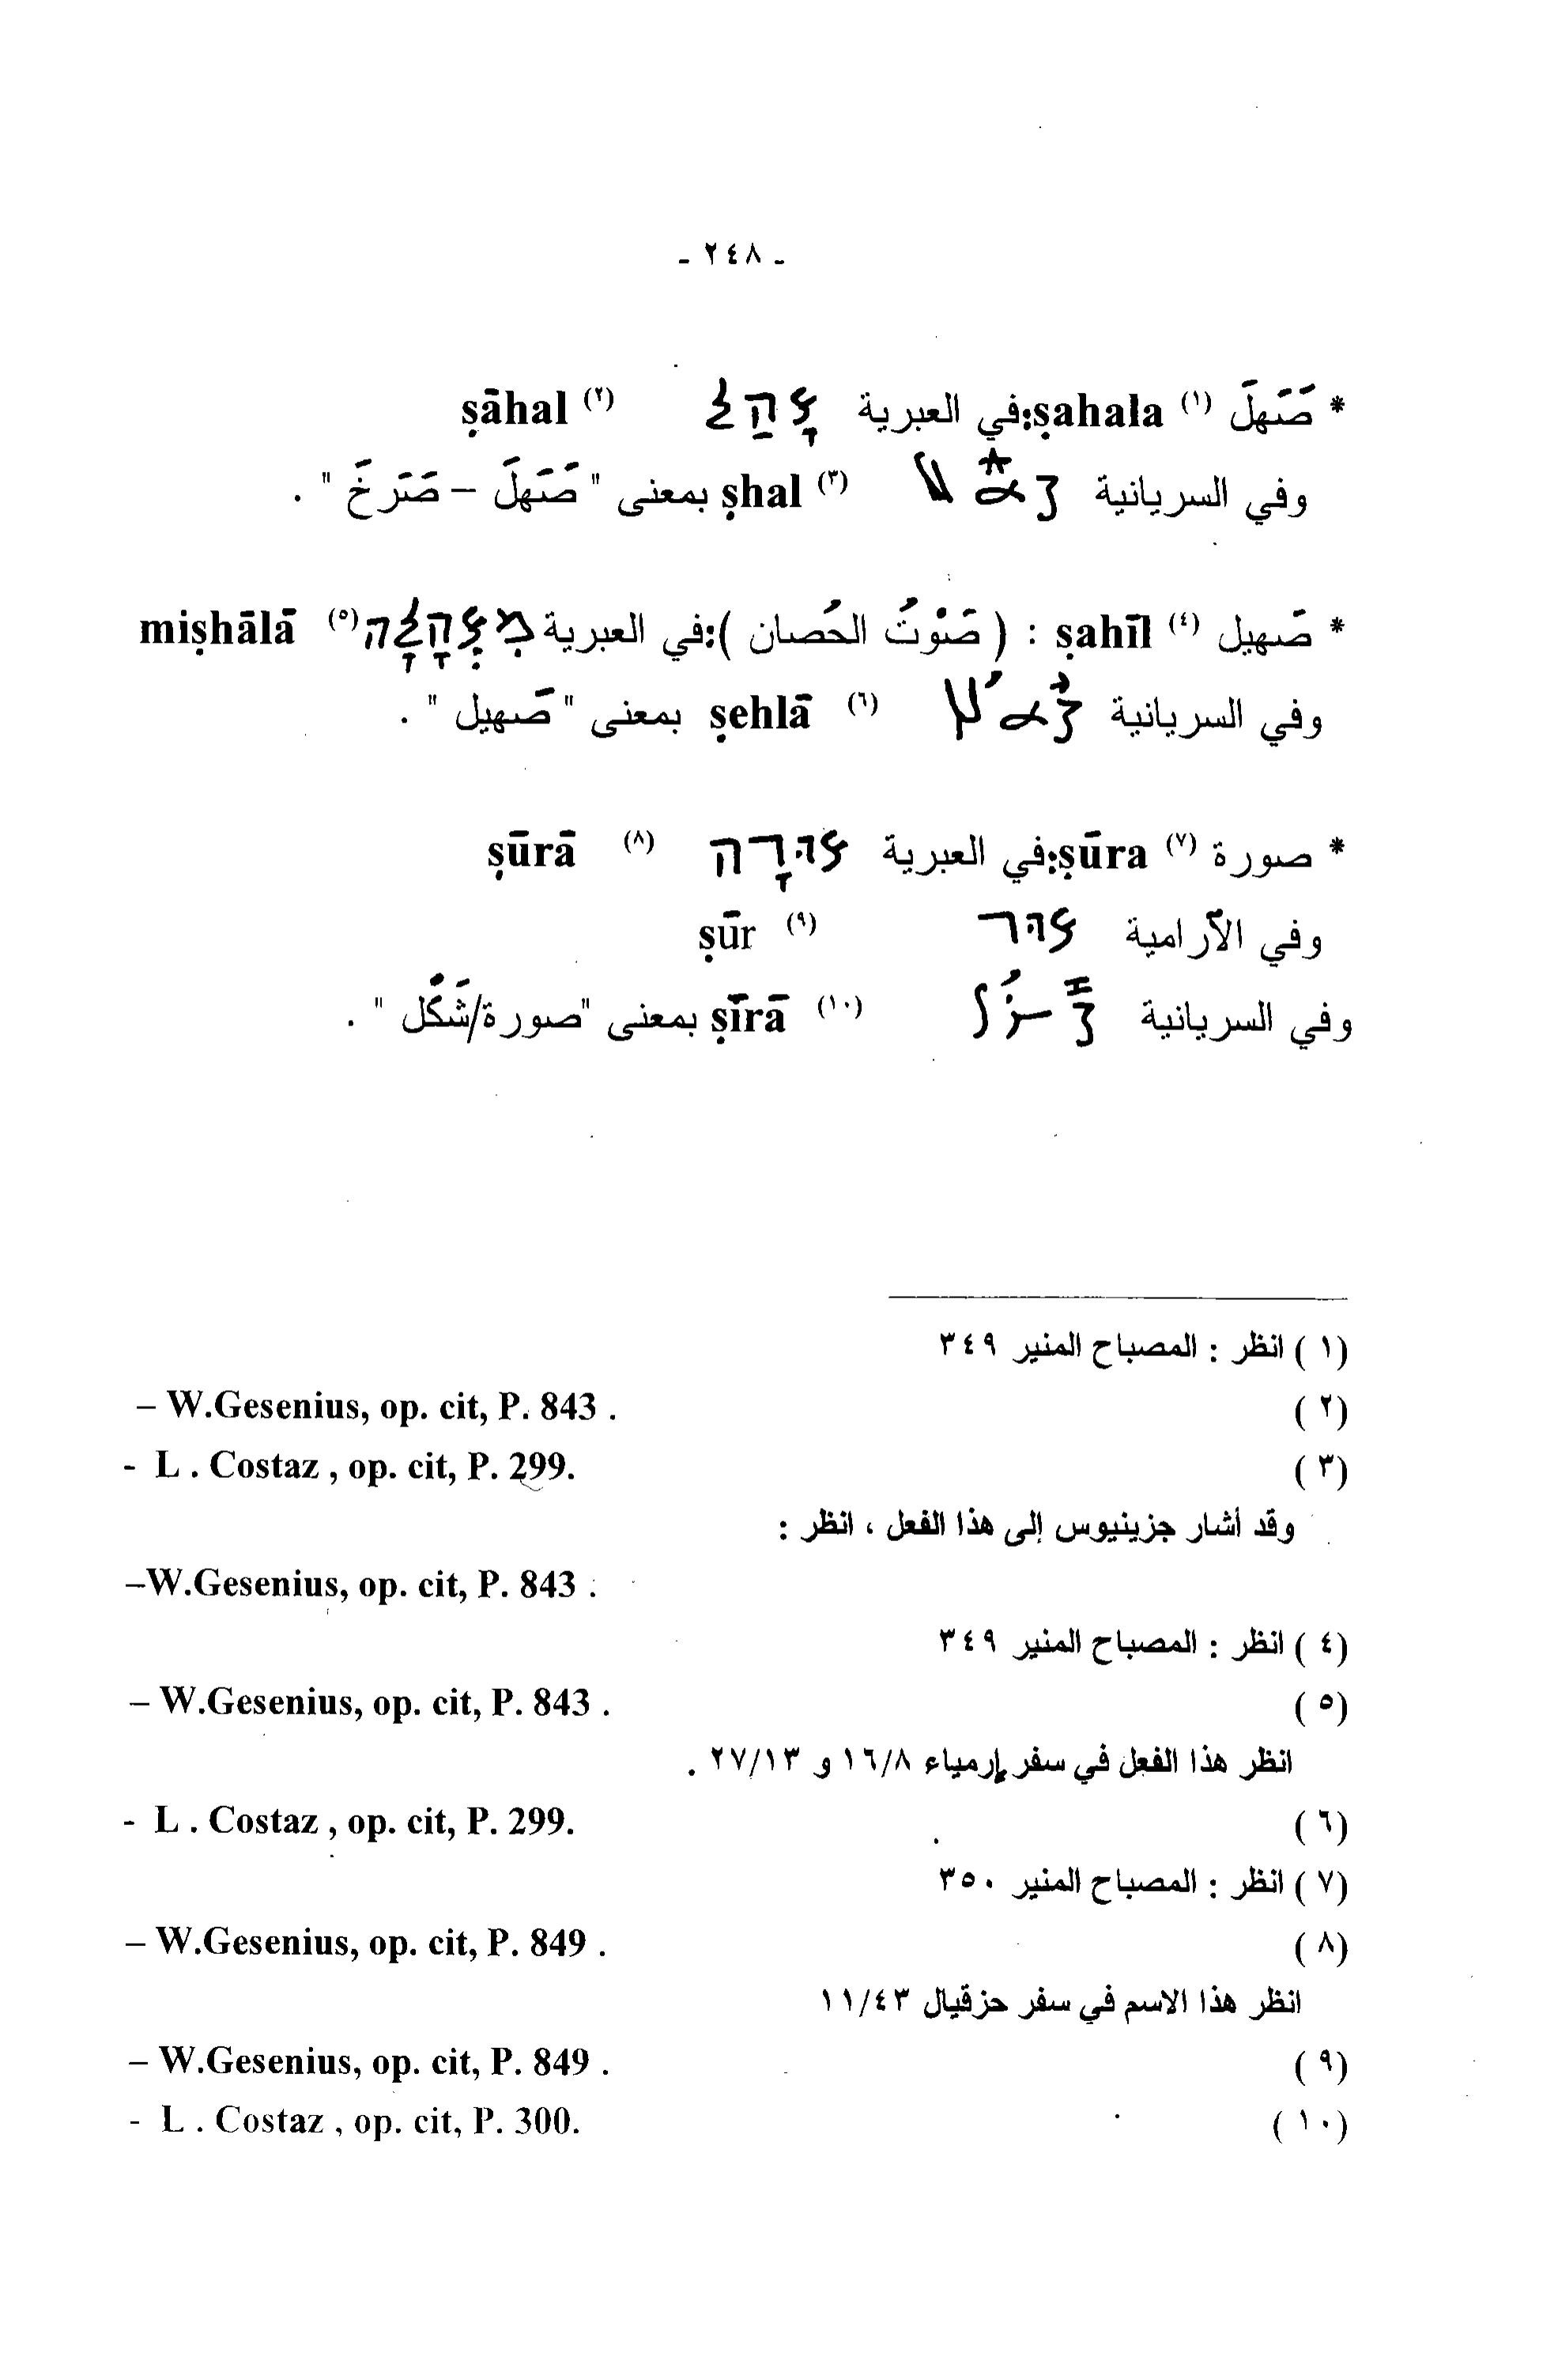 - ٢٤٨ -
* صَهَلَ (١) ṣahala:في العبرية צָהַל (٢) ṣāhal
وفي السريانية ܨܗܠ (٣) ṣhal بمعنى " صَهَلَ – صَرَخَ " .
* صَهيل (٤) ṣahīl : ( صَوْتُ الحُصان ):في العبرية מִצְהָלָה (٥) miṣhālā
وفي السريانية ܨܗܠܐ (٦) ṣehlā بمعنى " صَهيل " .
* صورة (٧) ṣūra:في العبرية צוּרָה (٨) ṣūrā
وفي الآرامية צוּר (٩) ṣūr
وفي السريانية (١٠) ṣīrā بمعنى "صورة/شَكْل " .
(١) انظر : المصباح المنير ٣٤٩
(٢) – W.Gesenius, op. cit, P. 843 .
(٣) - L . Costaz , op. cit, P. 299.
وقد أشار جزينيوس إلى هذا الفعل ، انظر :
–W.Gesenius, op. cit, P. 843 .
(٤) انظر : المصباح المنير ٣٤٩
(٥) – W.Gesenius, op. cit, P. 843 .
انظر هذا الفعل في سفر إرمياء ١٦/٨ و ٢٧/١٣ .
(٦) - L . Costaz , op. cit, P. 299.
(٧) انظر : المصباح المنير ٣٥٠
(٨) – W.Gesenius, op. cit, P. 849 .
انظر هذا الاسم في سفر حزقيال ١١/٤٣
(٩) – W.Gesenius, op. cit, P. 849 .
(١٠) - L . Costaz , op. cit, P. 300.